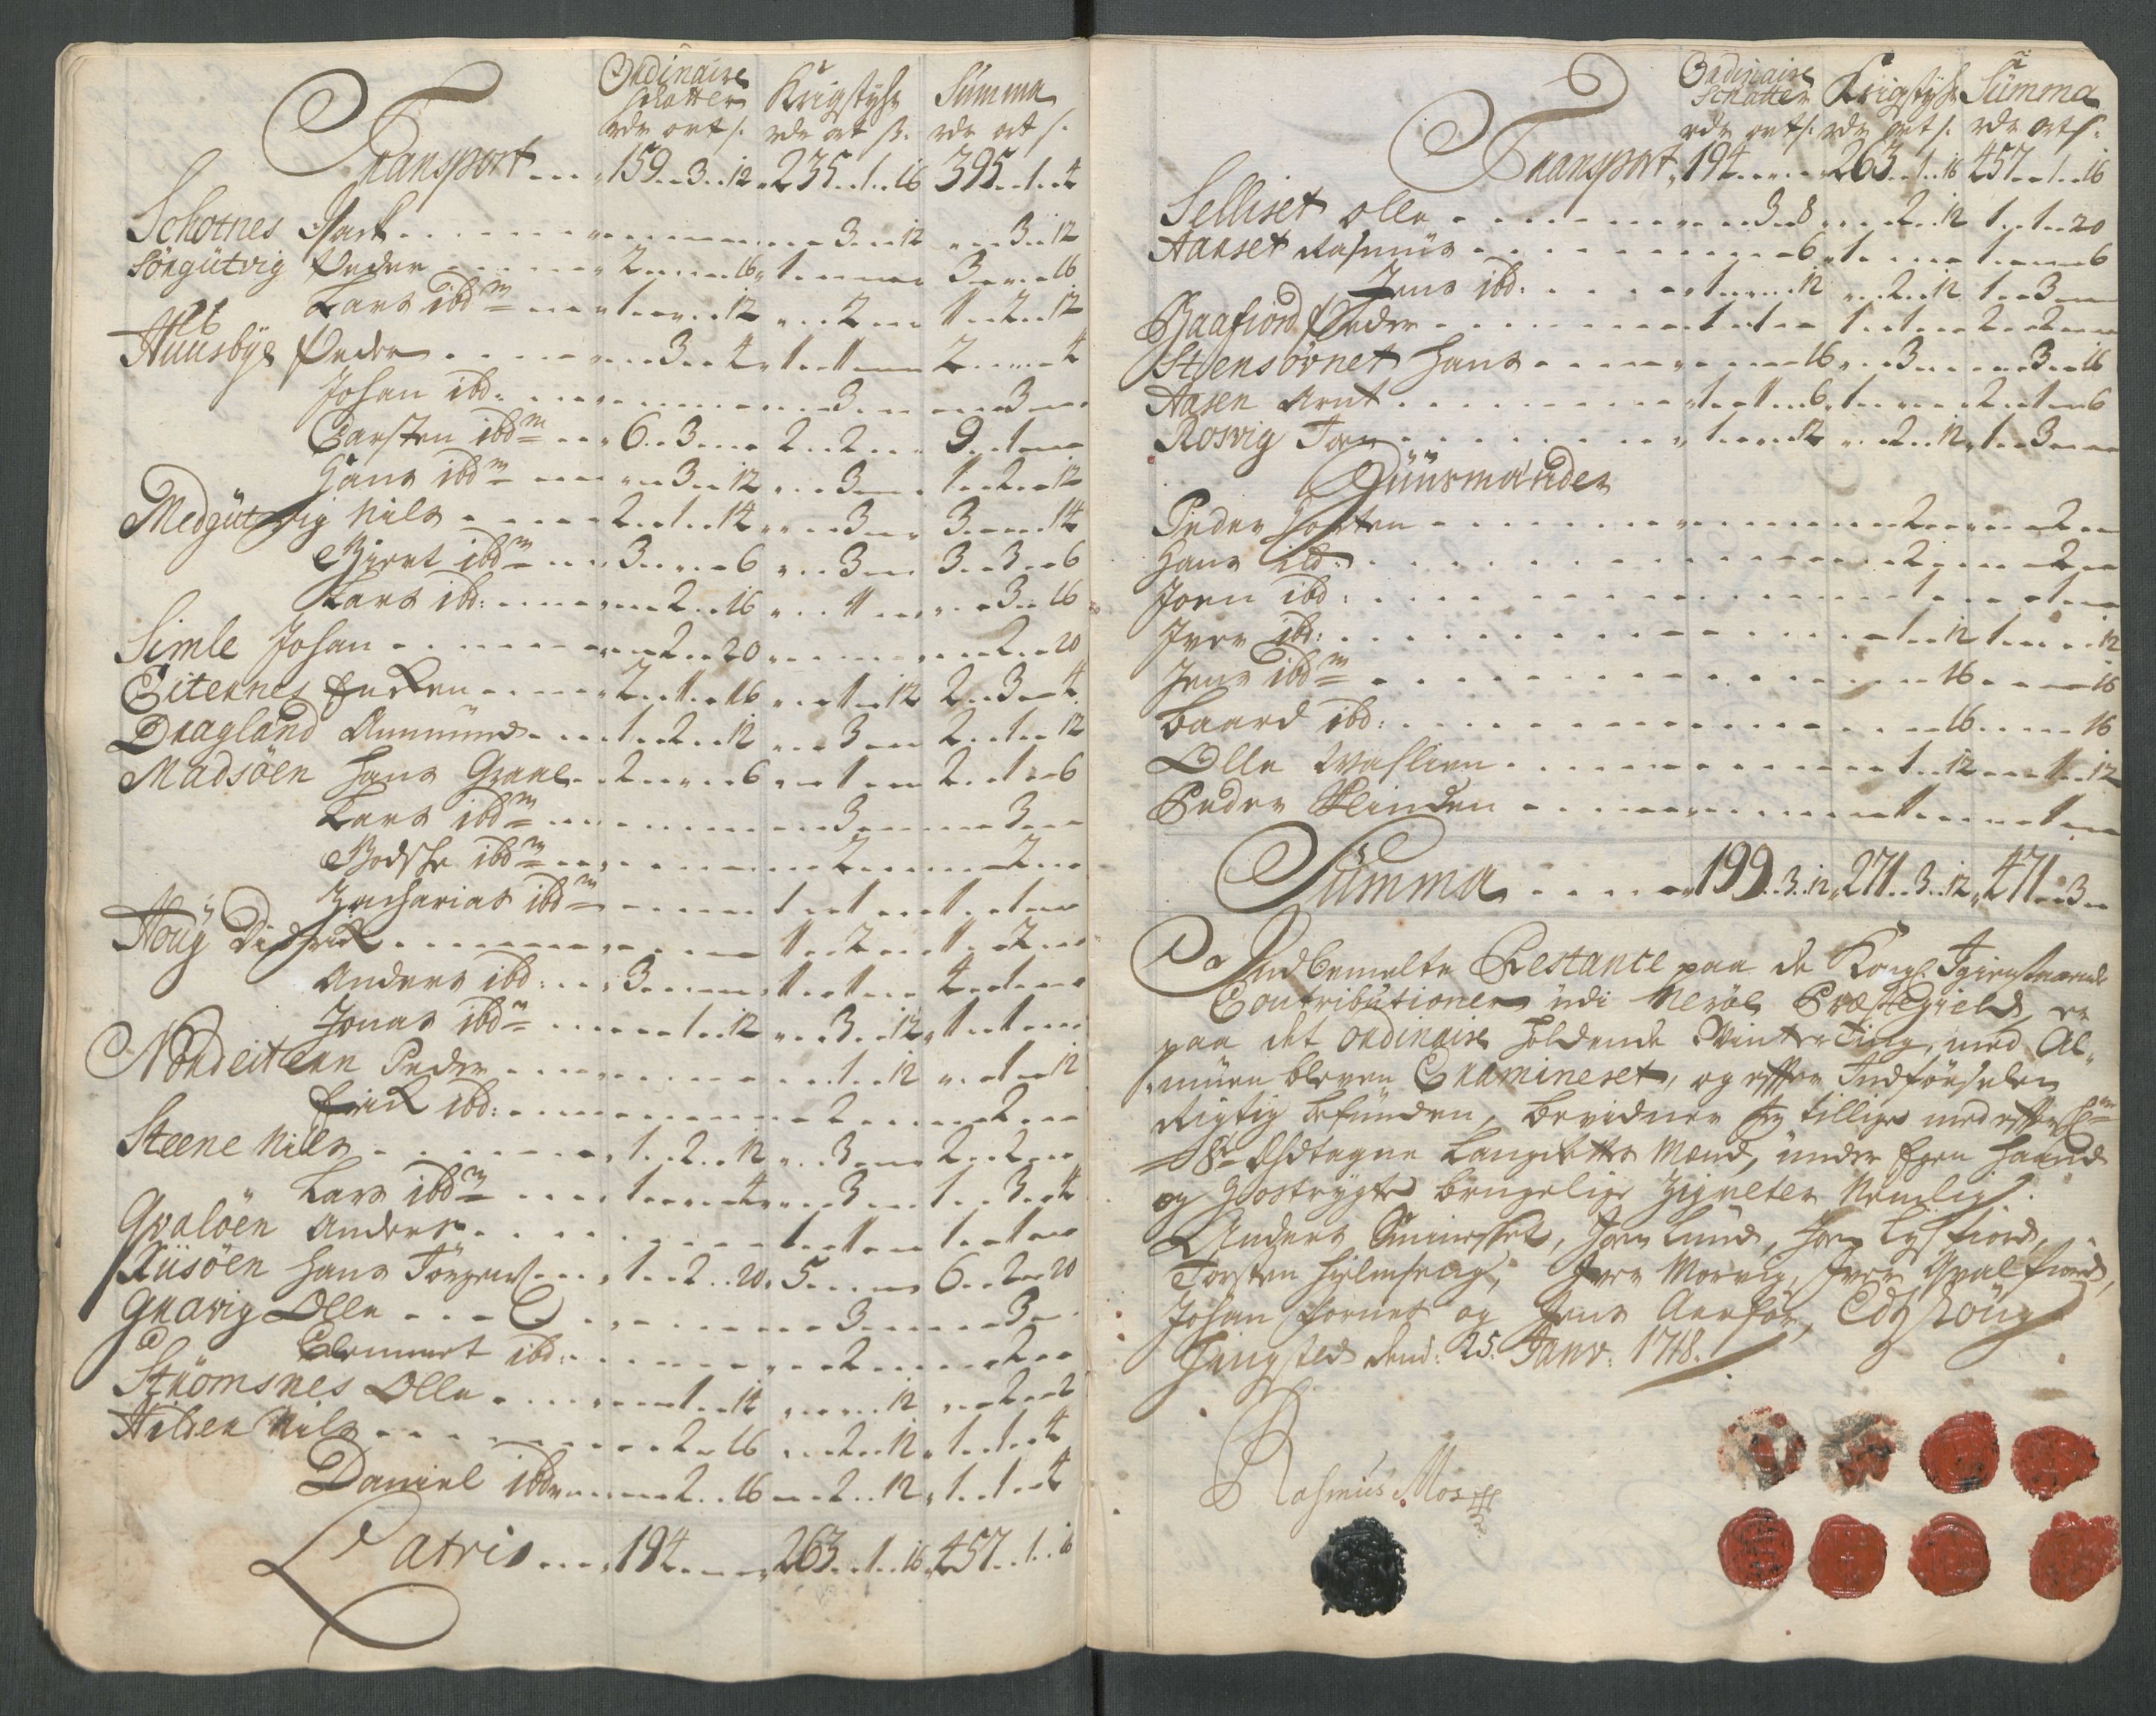 Ordinaire Krigstyhr Summa
Schatter
rdr ort s. rdr ort s. rdr ort s.
Transport 159 3 12 235 1 16 395 1 4
Schotnes Isach 3 12 3 12
Sörgutvig Peder 2 16 1 3 16
Lars ibdm 1 12 2 1 2 12
Huusbye Peder 3 4 1 1 2 4
Johan ibd: 3 3
Carsten ibdm 6 3 2 2 9 1
Hans ibdm 3 12 3 1 2 12
Medgutvig Nils 2 1 14 3 3 14
Giert ibdm 3 6 3 3 3 6
Lars ibd: 2 16 1 3 16
Simle Johan 2 20 2 20
Eiternes Enken 2 1 16 1 12 2 3 4
Dragland Ammund 1 2 12 3 2 1 12
Madsöen Hans Graae 2 6 1 2 1 6
Lars ibdm 3 3
Bodsche ibdm 2 2
Zacharias ibdm 1 1 1 1
Houg Didrich 1 2 1 2
Anders ibd: 3 1 1 4 1
Jonas ibdm 1 12 3 12 1 1
Nordeiteren Peder 1 12 1 12
Erich ibd: 2 2
Steene Nils 1 2 12 3 2 2
Lars ibdm 1 4 3 1 3 4
Qvalöen Anders 1 1 1 1
Riisöen Hans Törgens: 1 2 20 5 6 2 20
Qvavig Olle 3 3
Clemmet ibd: 2 2
Strömsnes Olle 1 14 12 2 2
Hilden Nils 2 16 2 12 1 1 4
Daniel ibdm 2 16 2 12 1 1 4
Latris 194 263 1 16 457 1 16
Ordinaire Krigstyhr Summa
Schatter
rdr ort s. rdr ort s. rdr ort s.
Transport 194 263 1 16 457 1 16
Selliset Olle 3 8 2 12 1 1 20
Aarset Rasmus 6 1 1 6
Jens ibd: 1 12 2 12 1 3
Baafiord Peder 1 1 1 1 2 2
Steensövnet Hans 16 3 3 16
Aasen Arnt 1 1 6 1 2 1 6
Rosvig Tore 1 12 2 12 1 3
Huusmænder
Peder Horten 2 2
Hans ibd: 2 2
Joen ibd: 1 1
Iver ibd: 1 12 1 12
Jens ibdm 16 16
Baard ibd: 16 16
Olle Waslien 1 12 1 12
Peder Klinden 1 1
Summa 199 3 12 271 3 12 471 3
Da Indbemelte Restance paa de Kongl: Igienstaaende
Contributioner udi Neröe Præstegield, er
paa det ordinaire holdende Winter Ting, med Al-
muen bleven Examineret, og efter Indförselen
Rigtig befunden, bevidner ieg tillige med efterschr:
8te Edtagne Laugrettes Mænd, under Egen Haand
og hostrygte brugelige Zigneter Nemlig:
Anders , Joen Lund, Joen Lysfiord,
Torsten , Iver Morvig, Iver Qvalfiord,
Johan Hornet og Jens Aarfor,
Tingsted dend: 25. Janv: 1718.
Rasmus Mos